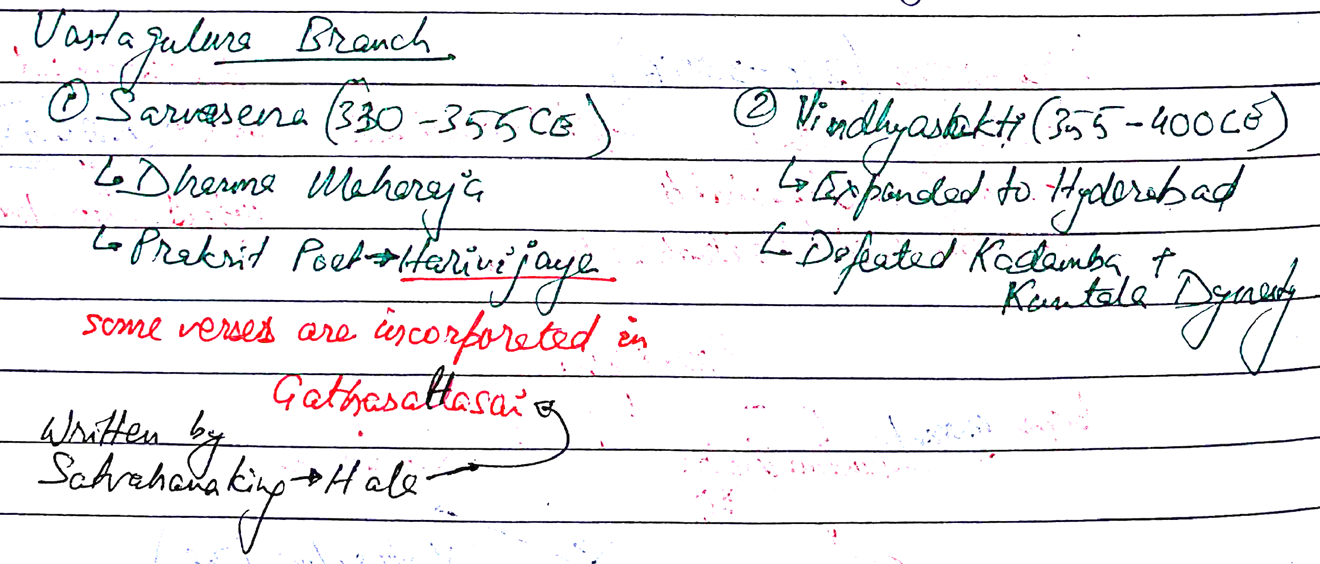 Vastagulura Branch
① Sarvasena (330-355CE)
↳ Dharma Maharaja
↳ Prakrit Poet → Harivijaya
some verses are incorporated in
Gathasattasai
Written by
Satvahana king → Hala
② Vindhyashakti (355-400CE)
↳ Expanded to Hyderabad
↳ Defeated Kadamba +
Kuntala Dynesty